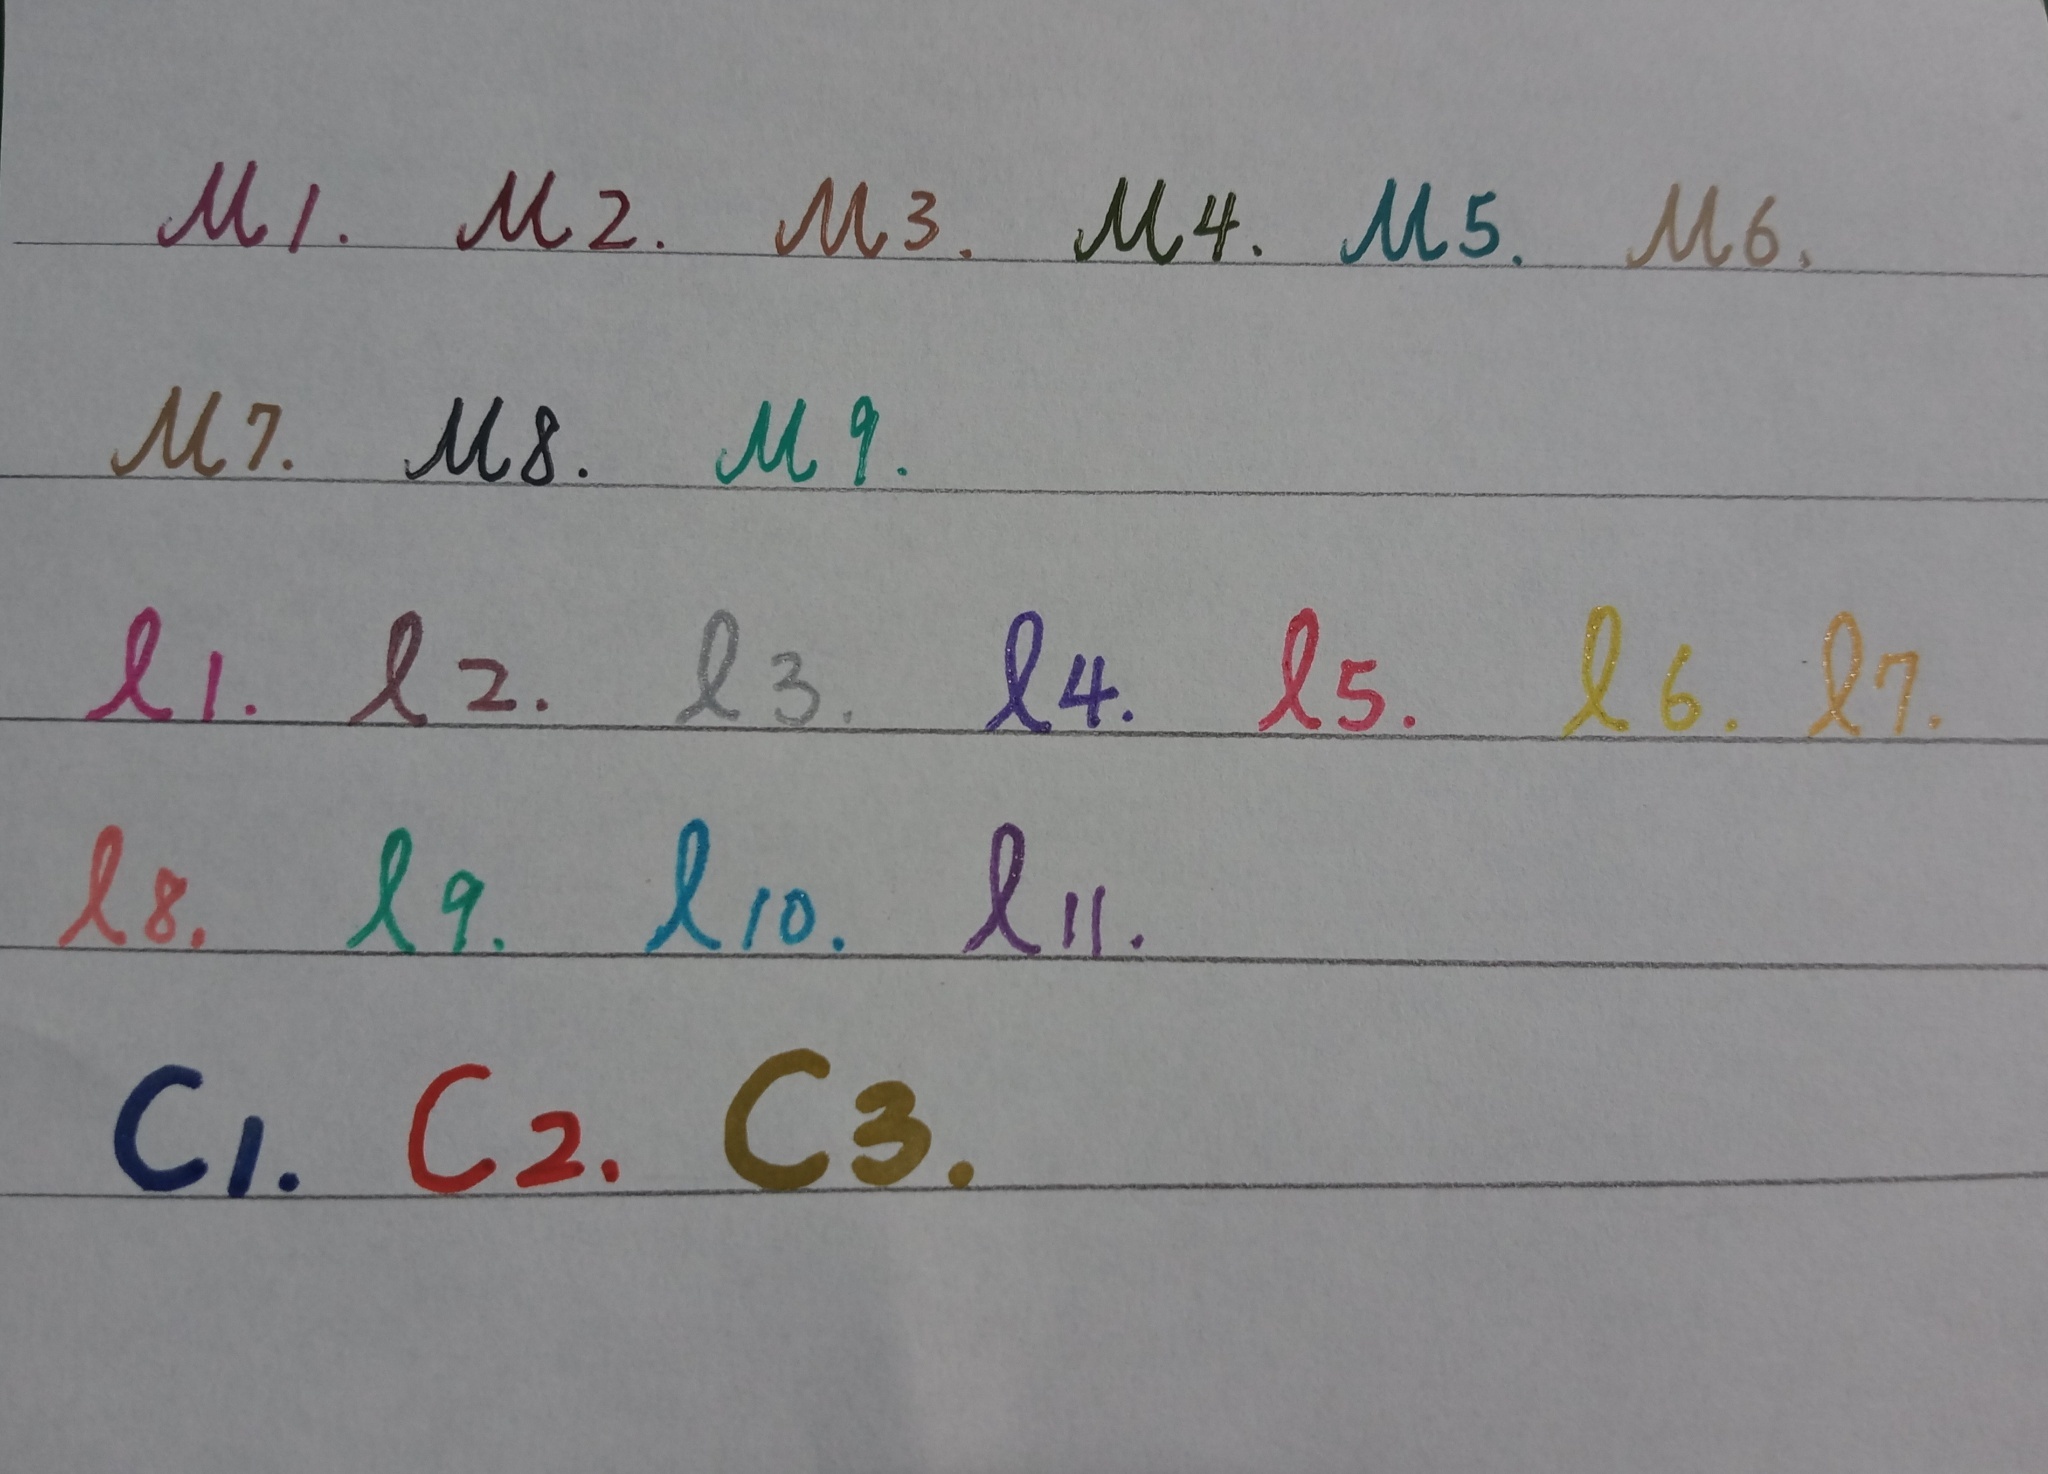 M1. M2. M3. M4. M5. M6.
M7. M8. M9.
l1. l2. l3. l4. l5. l6. l7.
l8. l9. l10. l11.
C1. C2. C3.